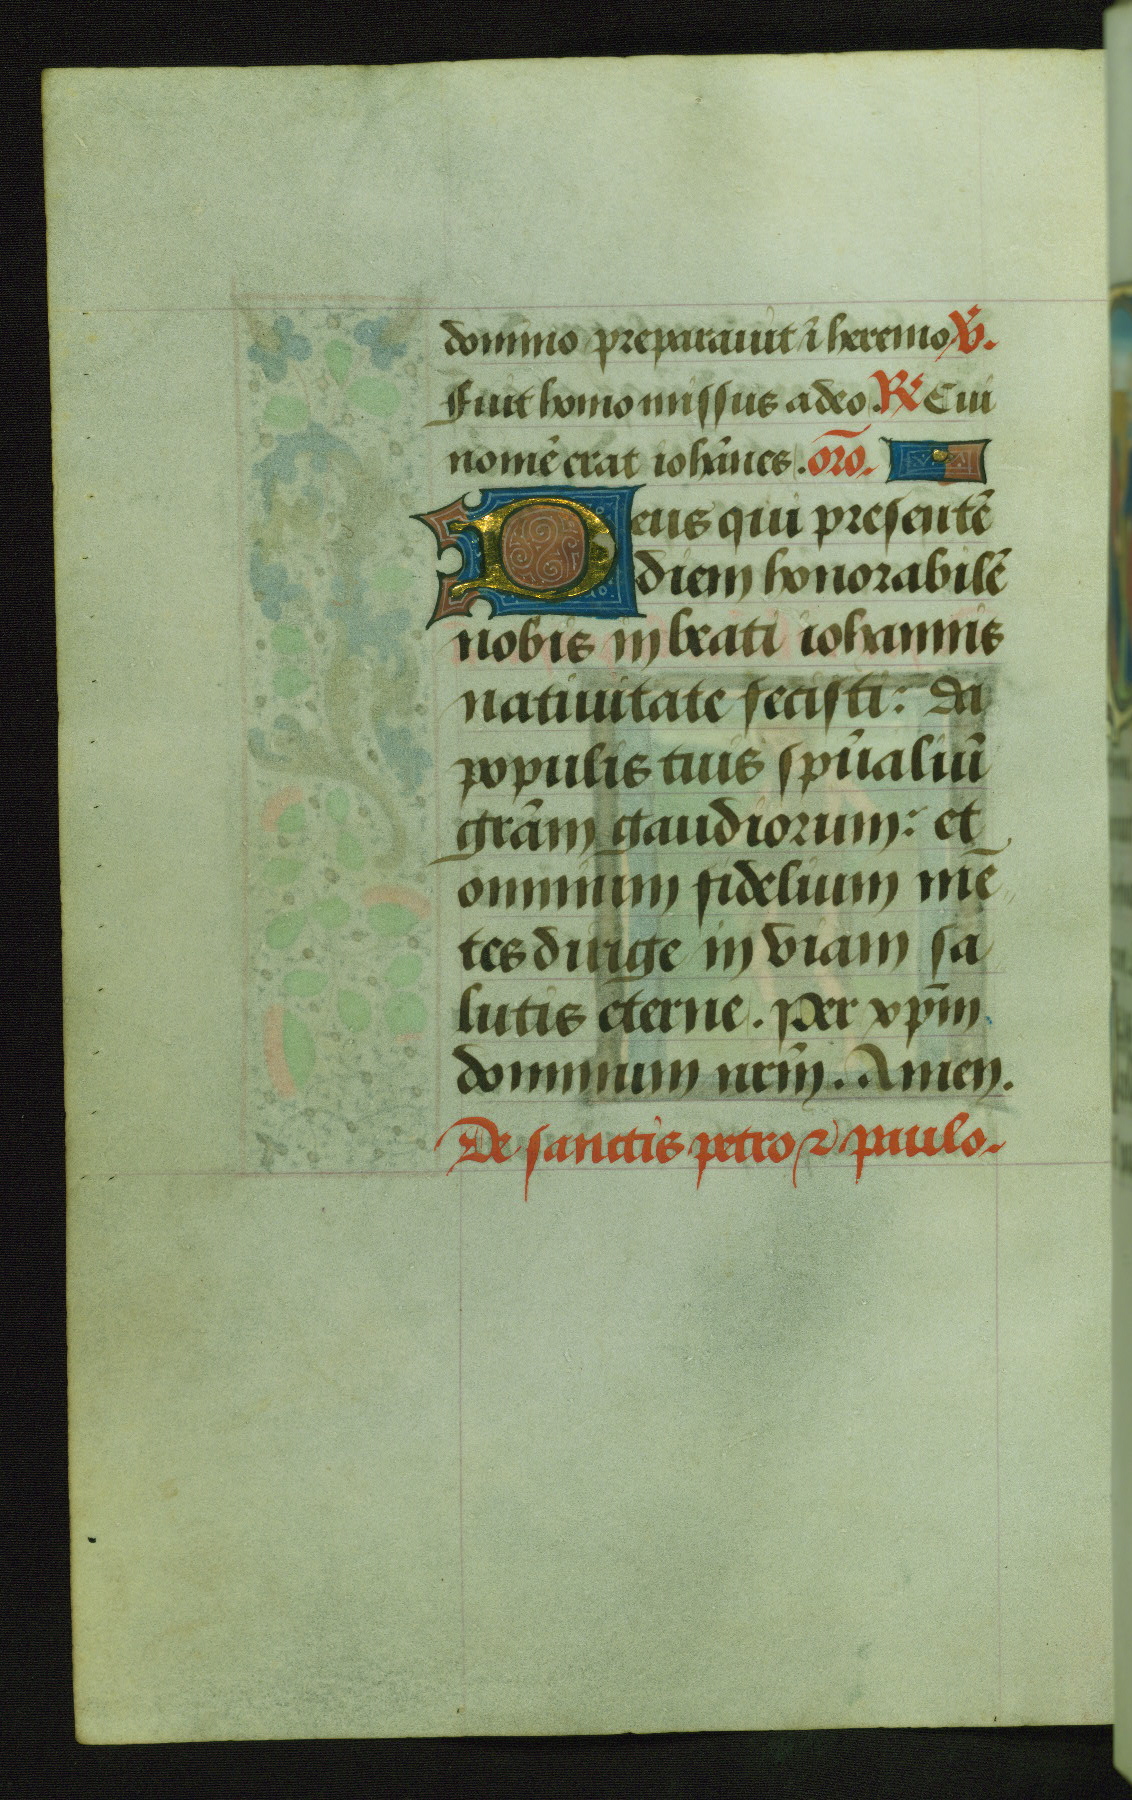 domino preparauit ī heremo V̄.
Fuit homo missus a deo. R̄ Cui
nomē erat iohānes. or̄o.
Deus qui presentē
diem honorabilē
nobis in beati iohannis
natiuitate fecisti: da
populis tuis sp̄ualiū
grām gaudiorum: et
omnium fidelium mē
tes dirige in viam sa
lutis eterne. Per xp̄m
dominum nrm̄. Amen.
De sanctis petro ⁊ paulo.